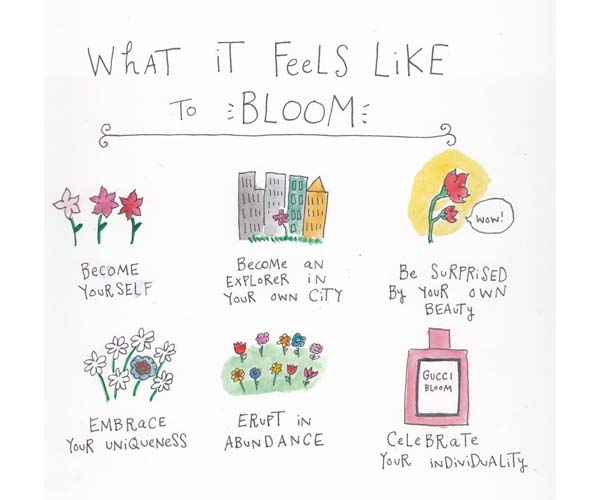 WHAT IT FEELS LIKE
TO BLOOM
BECOME
YOURSELF
BECOME AN
EXPLORER IN
YOUR OWN CITY
WOW!
BE SURPRISED
BY YOUR OWN
BEAUTY
EMBRACE
YOUR UNIQUENESS
ERUPT IN
ABUNDANCE
GUCCI
BLOOM
CELEBRATE
YOUR INDIVIDUALITY